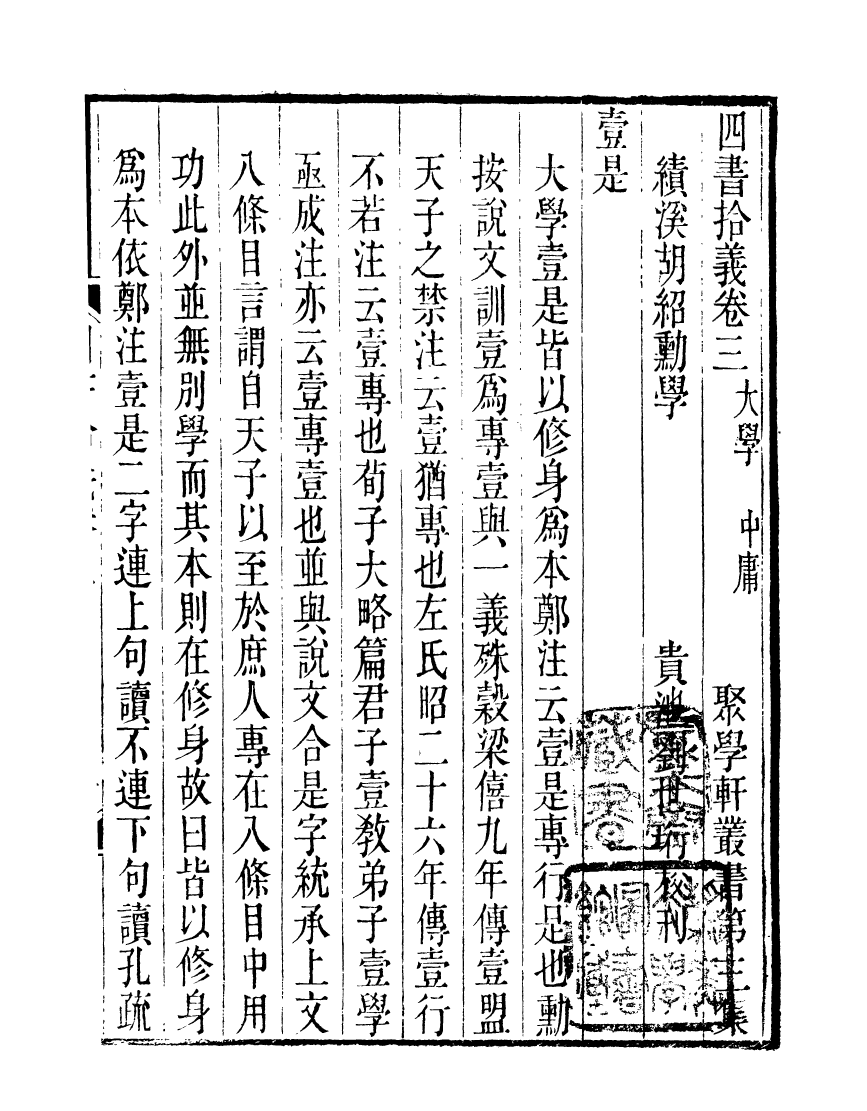 四書拾義卷三 大學 中庸 聚學軒叢書第三集
績溪胡紹勳學 貴池劉世珩校刊
壹是
大學壹是皆以修身爲本鄭注云壹是專行是也勳
按說文訓壹爲專壹與一義殊穀梁僖九年傳壹盟
天子之禁注云壹猶專也左氏昭二十六年傳壹行
不若注云壹專也荀子大略篇君子壹敎弟子壹學
亟成注亦云壹專壹也並與說文合是字統承上文
八條目言謂自天子以至於庶人專在八條目中用
功此外並無別學而其本則在修身故曰皆以修身
爲本依鄭注壹是二字連上句讀不連下句讀孔疏